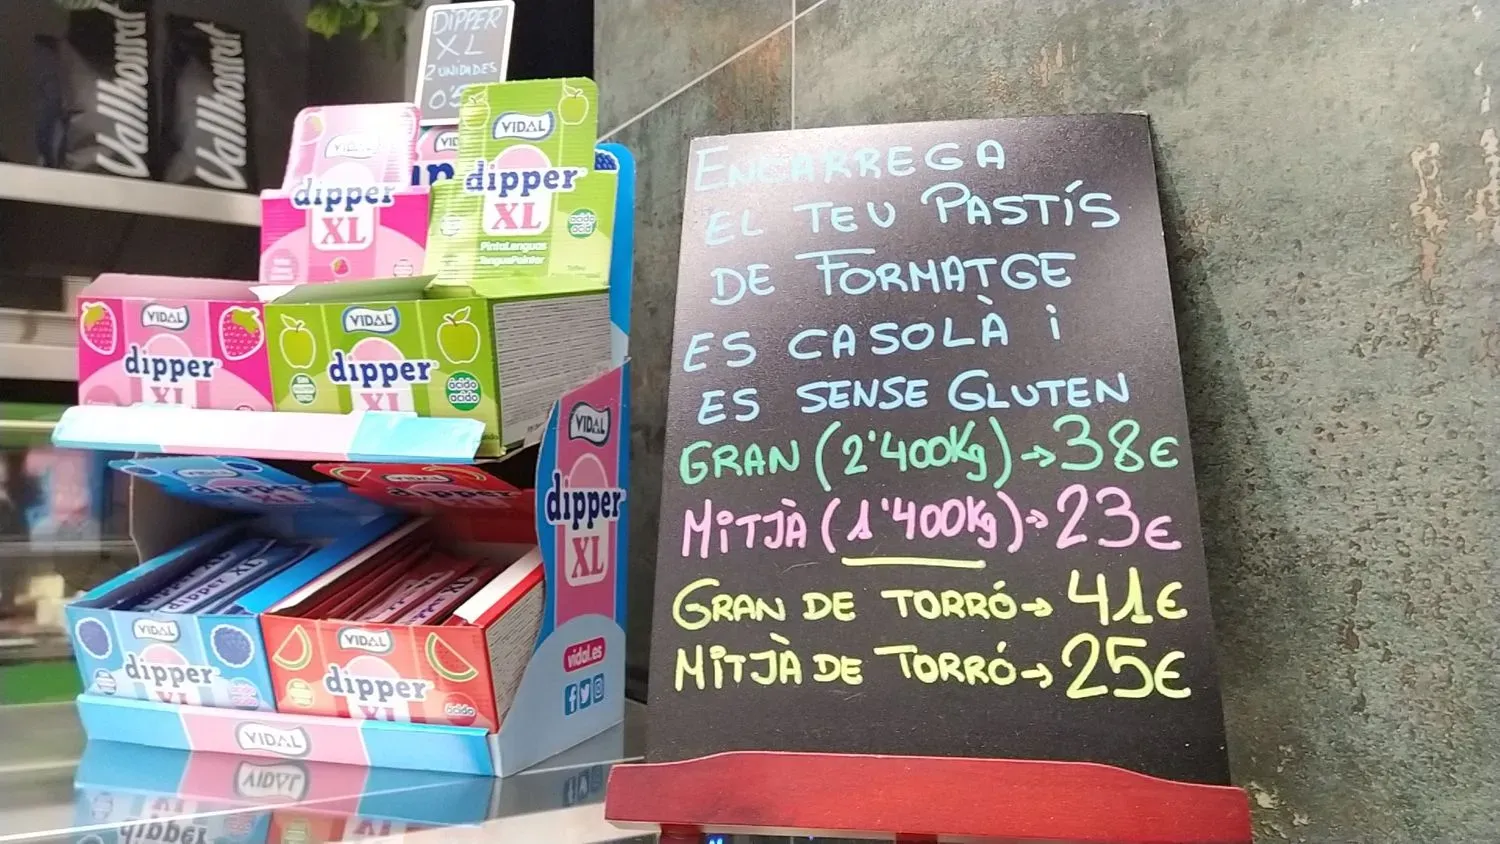 Vallhonrat
Vallhonrat
DIPPER
XL
2 UNIDADES
VIDAL
dipper
XL
VIDAL
dipper
XL
PintaLenguas
TonguePainter
VIDAL
dipper
XL
VIDAL
dipper
XL
ácido
VIDAL
dipper
XL
VIDAL
dipper
VIDAL
dipper
XL
ácido
vidal.es
VIDAL
ENCARREGA
EL TEU PASTÍS
DE FORMATGE
ES CASOLÀ i
ES SENSE GLUTEN
GRAN (2'400Kg)→38€
MITJÀ (1'400Kg)→23€
GRAN DE TORRÓ→41€
MITJÀ DE TORRÓ→25€